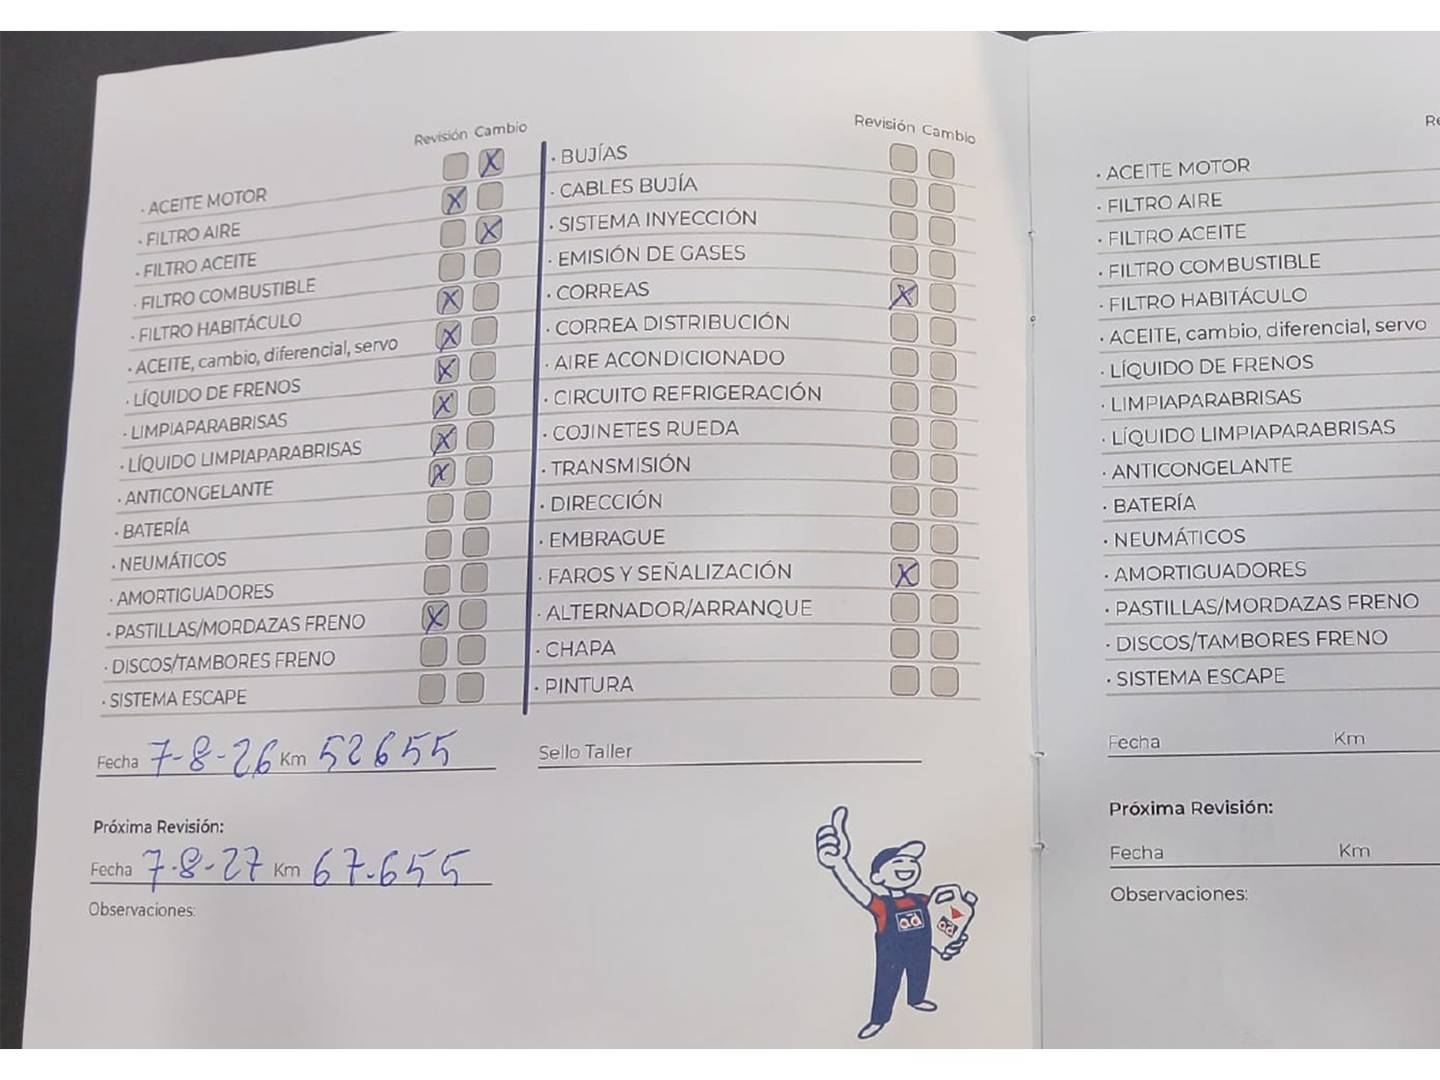 Revisión Cambio
· ACEITE MOTOR
· FILTRO AIRE
· FILTRO ACEITE
· FILTRO COMBUSTIBLE
· FILTRO HABITÁCULO
· ACEITE, cambio, diferencial, servo
· LÍQUIDO DE FRENOS
· LIMPIAPARABRISAS
· LÍQUIDO LIMPIAPARABRISAS
· ANTICONGELANTE
· BATERÍA
· NEUMÁTICOS
· AMORTIGUADORES
· PASTILLAS/MORDAZAS FRENO
· DISCOS/TAMBORES FRENO
· SISTEMA ESCAPE
Fecha 7-8-26 Km 52655
Próxima Revisión:
Fecha 7-8-27 Km 67.655
Observaciones:
Revisión Cambio
· BUJÍAS
· CABLES BUJÍA
· SISTEMA INYECCIÓN
· EMISIÓN DE GASES
· CORREAS
· CORREA DISTRIBUCIÓN
· AIRE ACONDICIONADO
· CIRCUITO REFRIGERACIÓN
· COJINETES RUEDA
· TRANSMISIÓN
· DIRECCIÓN
· EMBRAGUE
· FAROS Y SEÑALIZACIÓN
· ALTERNADOR/ARRANQUE
· CHAPA
· PINTURA
Sello Taller
ad
ad
Re
· ACEITE MOTOR
· FILTRO AIRE
· FILTRO ACEITE
· FILTRO COMBUSTIBLE
· FILTRO HABITÁCULO
· ACEITE, cambio, diferencial, servo
· LÍQUIDO DE FRENOS
· LIMPIAPARABRISAS
· LÍQUIDO LIMPIAPARABRISAS
· ANTICONGELANTE
· BATERÍA
· NEUMÁTICOS
· AMORTIGUADORES
· PASTILLAS/MORDAZAS FRENO
· DISCOS/TAMBORES FRENO
· SISTEMA ESCAPE
Fecha Km
Próxima Revisión:
Fecha Km
Observaciones: